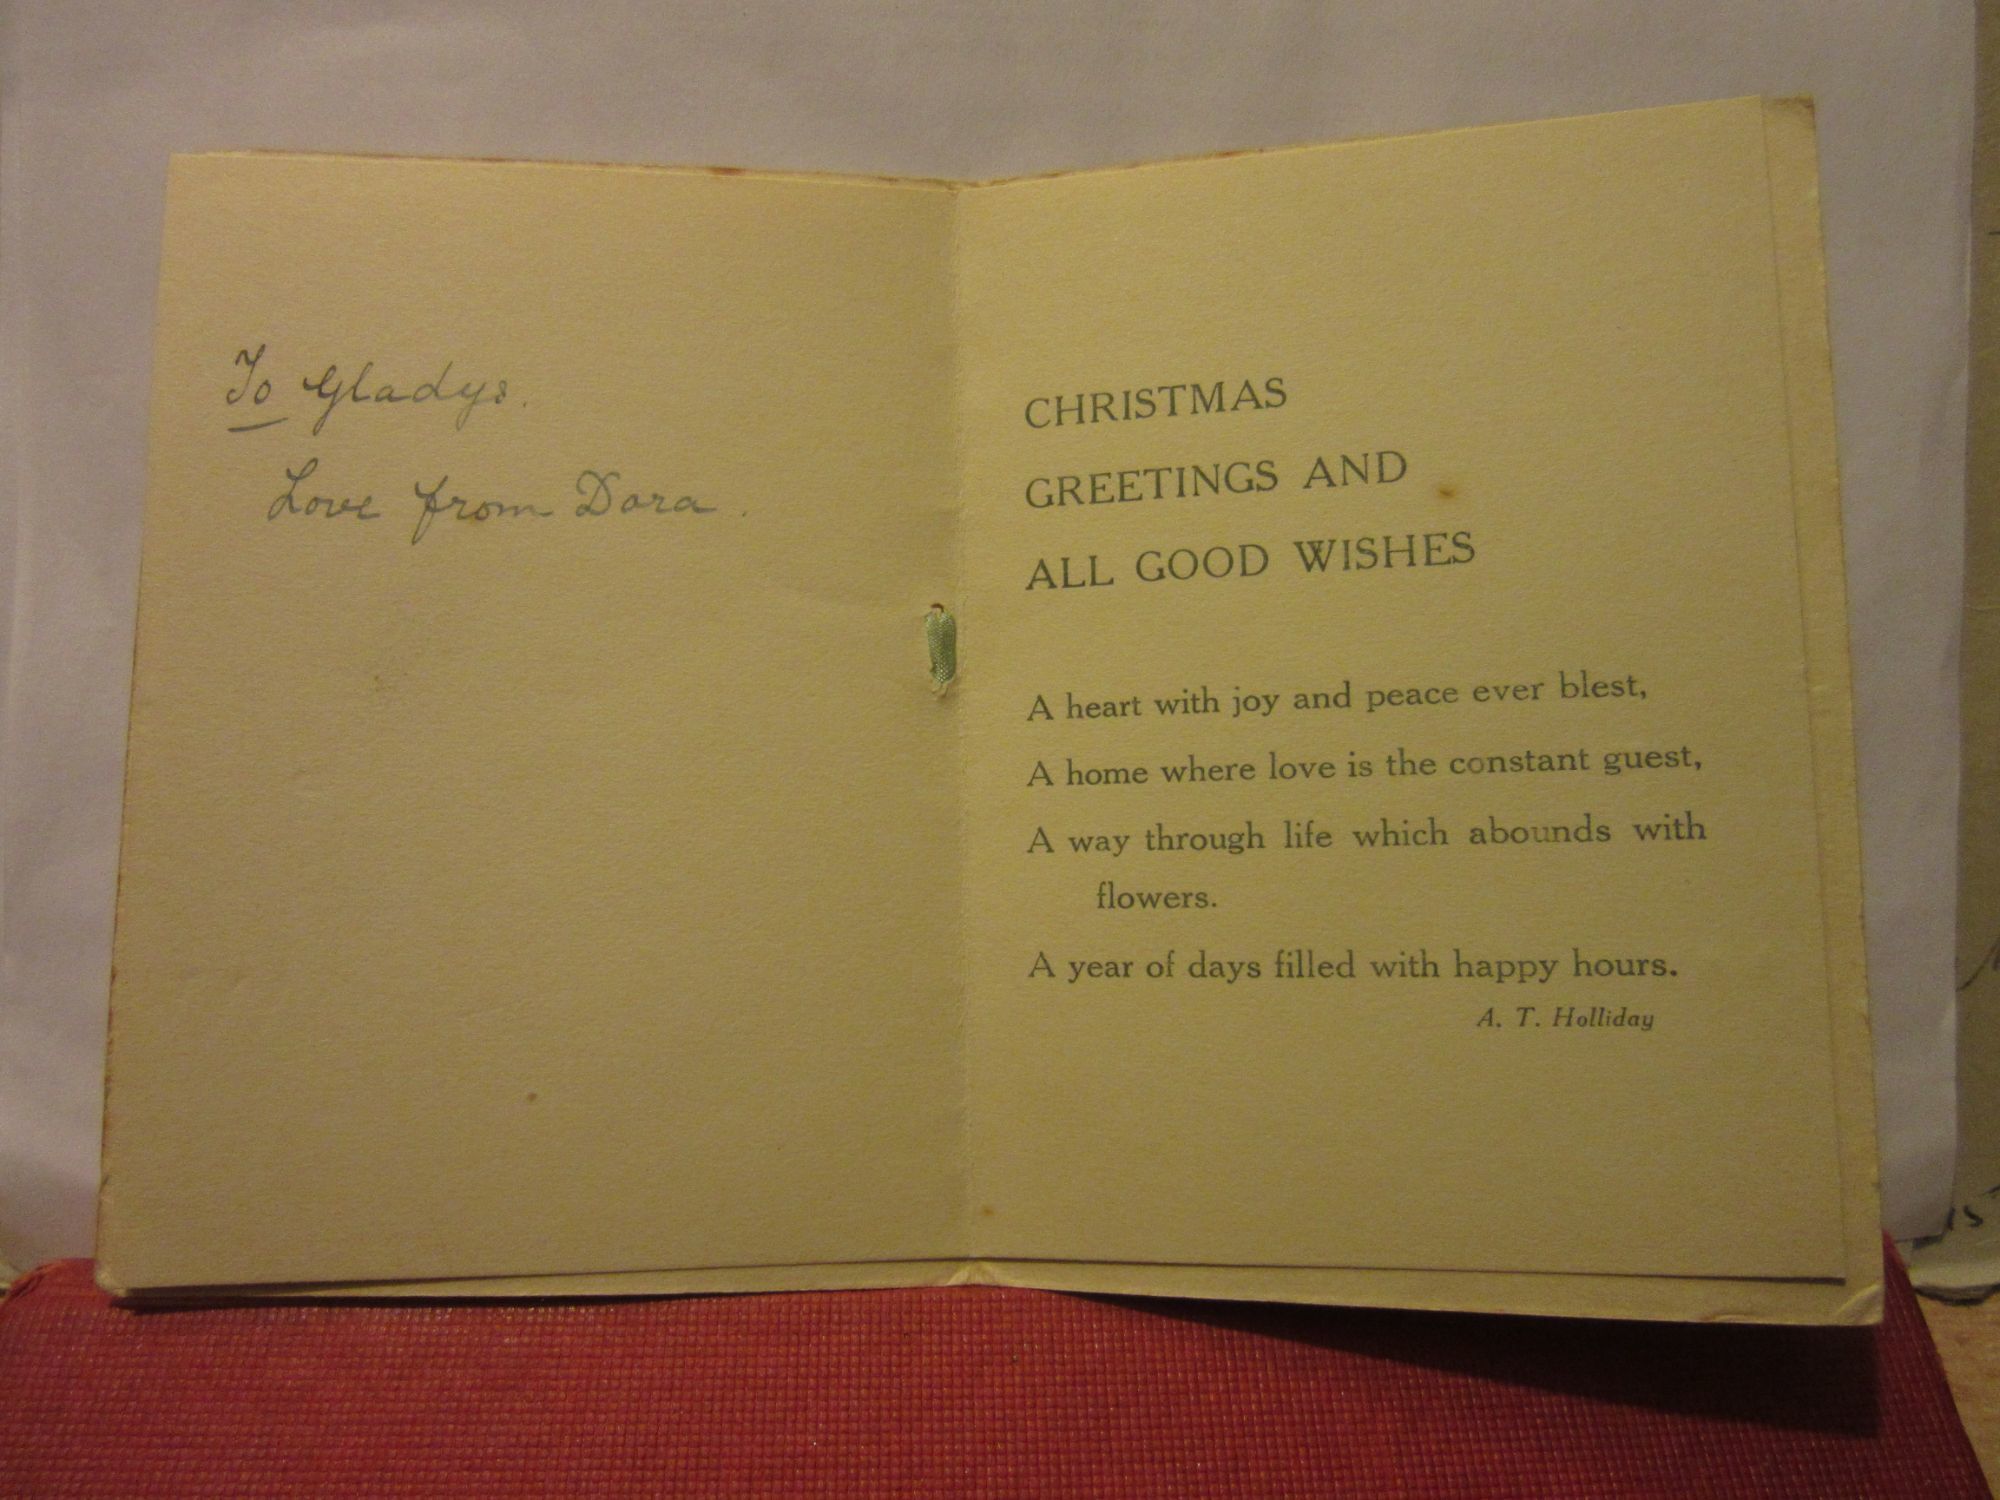 To Gladys.
Love from Dora.
CHRISTMAS
GREETINGS AND
ALL GOOD WISHES
A heart with joy and peace ever blest,
A home where love is the constant guest,
A way through life which abounds with
flowers.
A year of days filled with happy hours.
A. T. Holliday